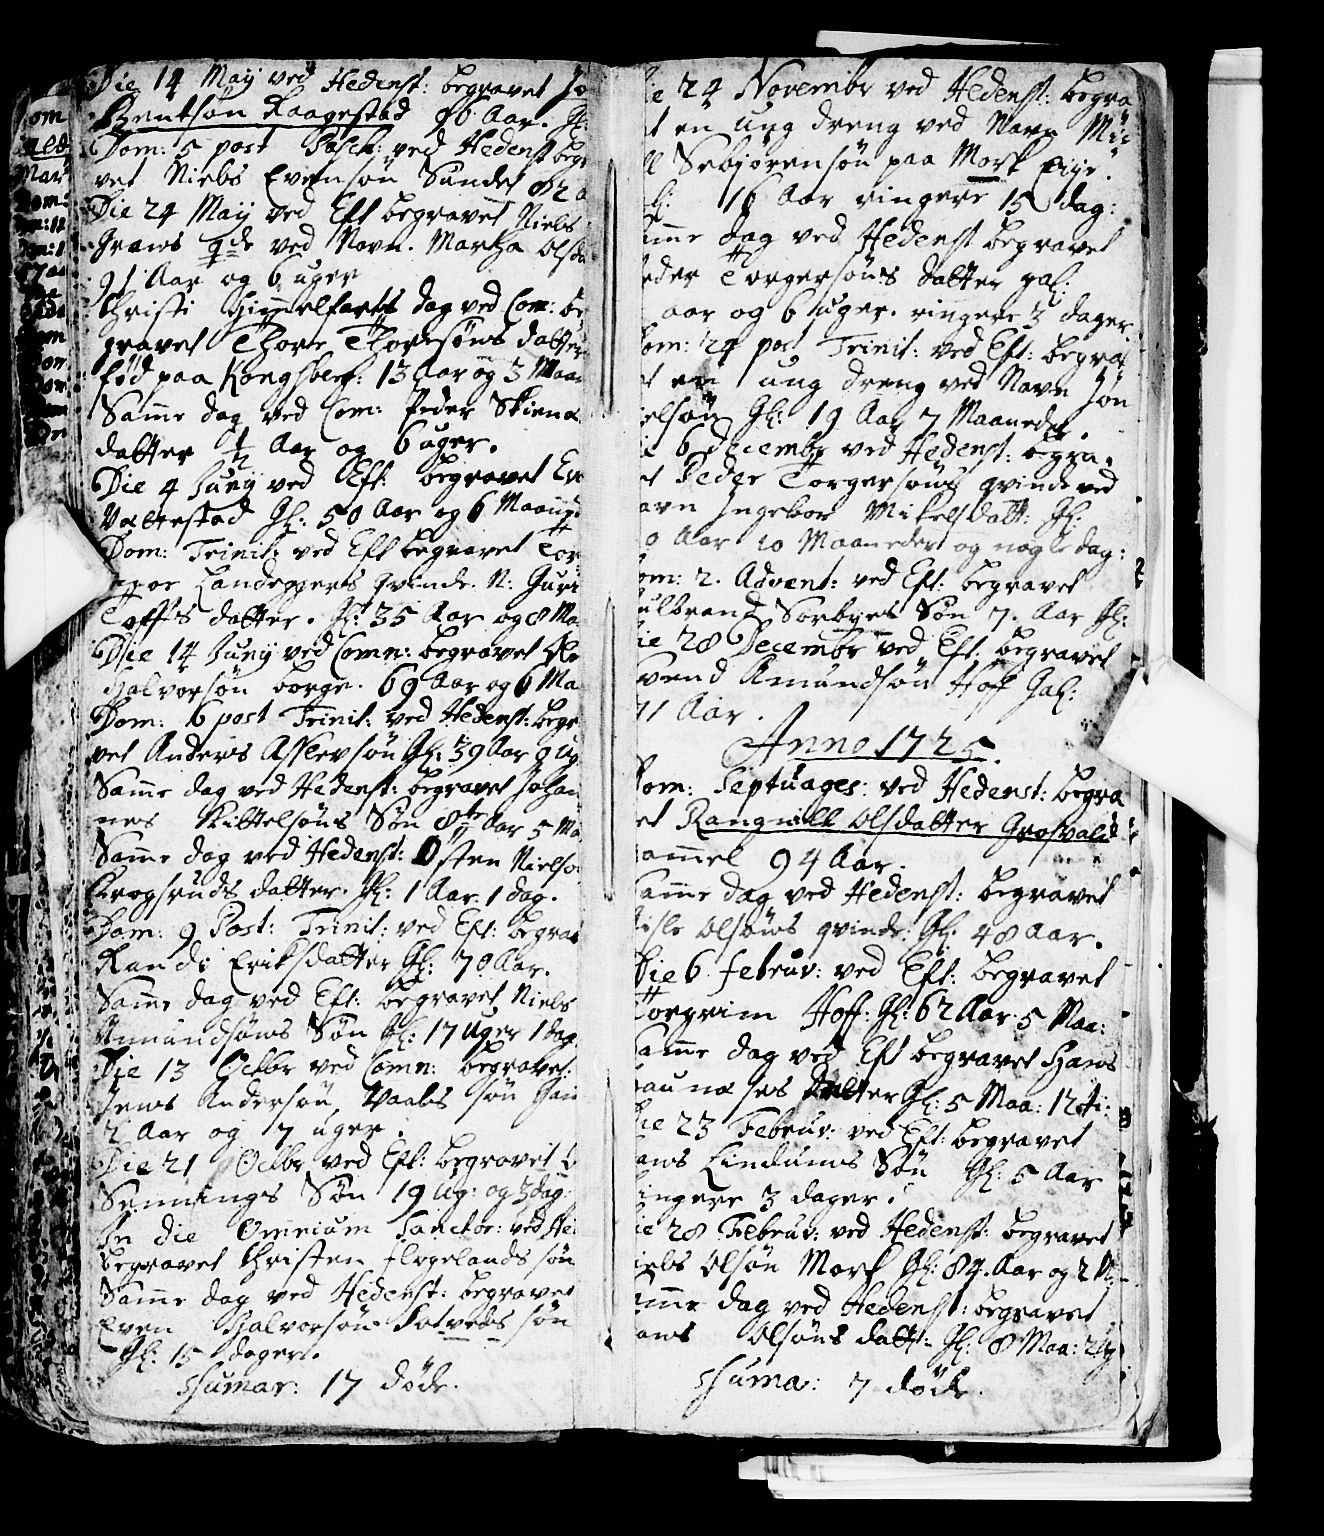 Die 14 Maÿ ved Hedenst: begravet Jo
Bentsøn Raagestad 86 Aar. Gl:
Dom: 5 post Pasch: ved Hedenst begr
vet Niels Evensøn Sundet 82 a
Die 24 Maÿ ved Eft begravet Niels
Graws qde ved Navn. Martha Olsda
91 Aar og 6 uger
Christi Himelfarts dag ved Com: be
gravet Thore Thoresøns datter
fød paa Kongsberg: 13 Aar og 3 Maa
Same dag ved Com: Peder Skiena
datter ½ Aar og 6 uger.
Die 4 Junÿ ved Eft: begravet Ev
Vattestad Gl: 50 Aar og 6 Maane
Dom: Trinit: ved Eft begravet Tor
Landeggers qvinde N: Guri
Toffs datter. Gl: 35 Aar og 8 Ma
Die 14 Junÿ ved Comn: begravet Ole
Halvorsøn borge. 69 Aar og 6 Ma
Dom: 6 post Trinit: ved Hedenst: begr
vet Anders Asslevsøn Gl: 39 Aar 9 ug
Same dag ved Hedenst: begravet Johan
nes Kittelsøns Søn 8te Aar 5 Ma
Same dag ved Hedenst: Østen Nielsø
Krogsruds datter. Gl: 1 Aar 1 dag.
Dom: 9 Post: Trinit: ved Eft: begrav
Randi Eriksdatter Gl: 70 Aar.
Same dag ved Eft: begravet Niels
Amundsøns Søn Gl: 17 uger 1 dag
Die 13 Octbr ved Comn: begravet
Jens Andersøn Vaabs søn
2 Aar og 7 uger.
Die 21 Octbr ved Eft: begravet
Sennings Søn 19 ug: og 3 dag:
In die Omnium Sanctor: ved He
begravet Christen flogelands søn
Same dag ved Hedenst: begravet
Even Halvorsøn Solveds søn
Gl: 15 dager.
Sumar: 17 døde.
ie 24 Novembr ved Hedenst: begra
t en ung dreng ved Navn Mi
ll Sebjørensøn paa Mork Eije.
gl: 16 Aar ringere 15 dag:
ame dag ved Hedenst begravet
eder Torgersøns datter gal:
aar og 6 uger. ringere 3 dager
om: 24 post Trinit: ved Eft: begra
et en ung dreng ved Navn Jon
ielsøn Gl: 19 Aar 7 Maaneder.
ie 6 Decembr ved Hedenst: begra
et Peder Torgersøns qvinde ved
avn Ingebor Mikelsdatt: Gl:
0 Aar 10 Maaneder og nogle dag:
om: 2. Advent: ved Eft: begravet
ulbrand Sorbyes Søn 7. Aar Gl:
ie 28 Decembr ved Eft: begravet
vend Amundsøn Hoff Gal:
71 Aar.
Anno 1725.
Dom: Septuages: ved Hedenst: begra
et Rangnill Olsdatter Grosvald
Gammel 94 Aar.
Same dag ved Hedenst: begravet
isle Olsøns qvinde. Gl: 48 Aar.
Die 6 februr: ved Eft: begravet
Torgrim Hoff. Gl: 62 Aar. 5 Maa:
Same dag ved Eft begravet Hans
datter Gl: 5 Maa: 12
ie 23 Februr: ved Eft: begravet
ans Lindums Søn Gl: 5 Aar
ringere 3 dager.
ie 28 Februr: ved Hedenst: begravet
iels Olsøn Mork Gl: 84. Aar og 2 M
ame dag ved Hedenst: begravet
ans Olsøns datt: Gl: 8 Maa: 2 Ug
Suma: 7 døde.